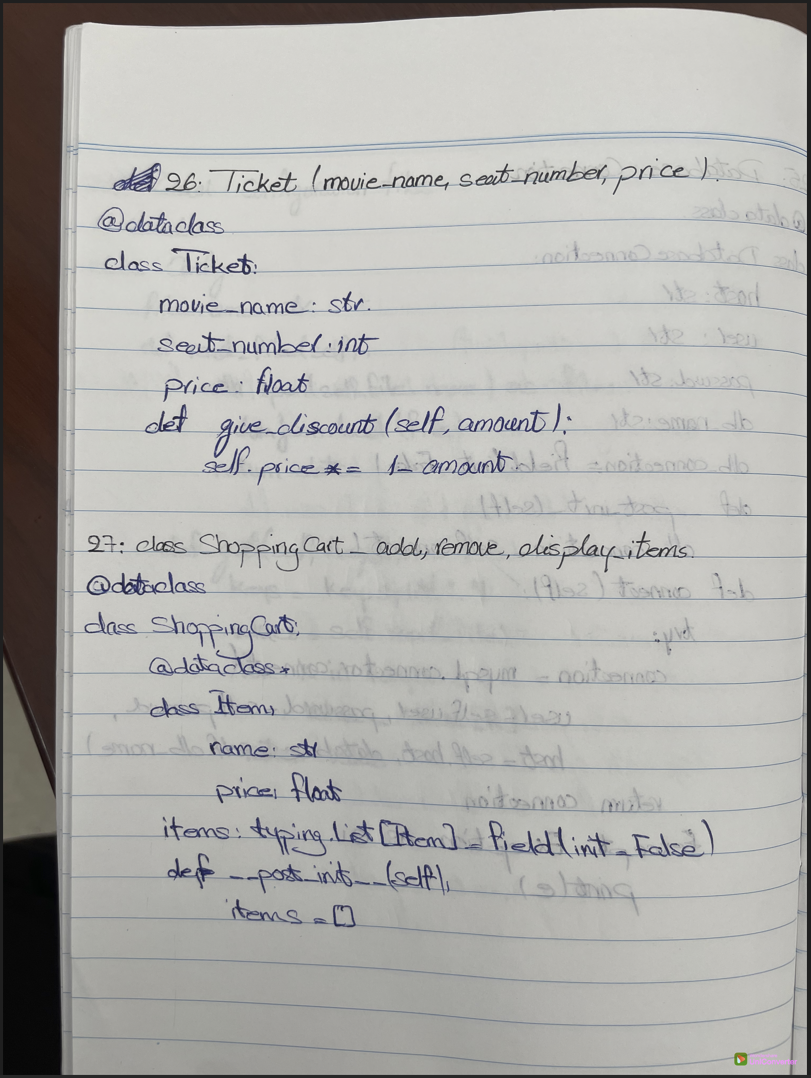 26: Ticket (movie_name, seat_number, price).
@dataclass
class Ticket:
movie_name: str.
seat_number: int
price: float
def give_discount (self, amount):
self.price *= 1- amount.
27: class ShoppingCart _ add, remove, display_items.
@dataclass
class ShoppingCart:
@dataclass
class Item:
name: str
price: float
items: typing.List[Item] = field(init=False)
def __post_init__(self):
items = []